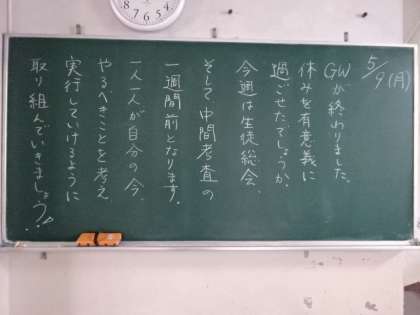 5/9(月)
GWが終わりました。
休みを有意義に
過ごせたでしょうか。
今週は生徒総会、
そして中間考査の
一週間前となります。
一人一人が自分の今、
やるべきことを考え
実行していけるように
取り組んでいきましょう!!